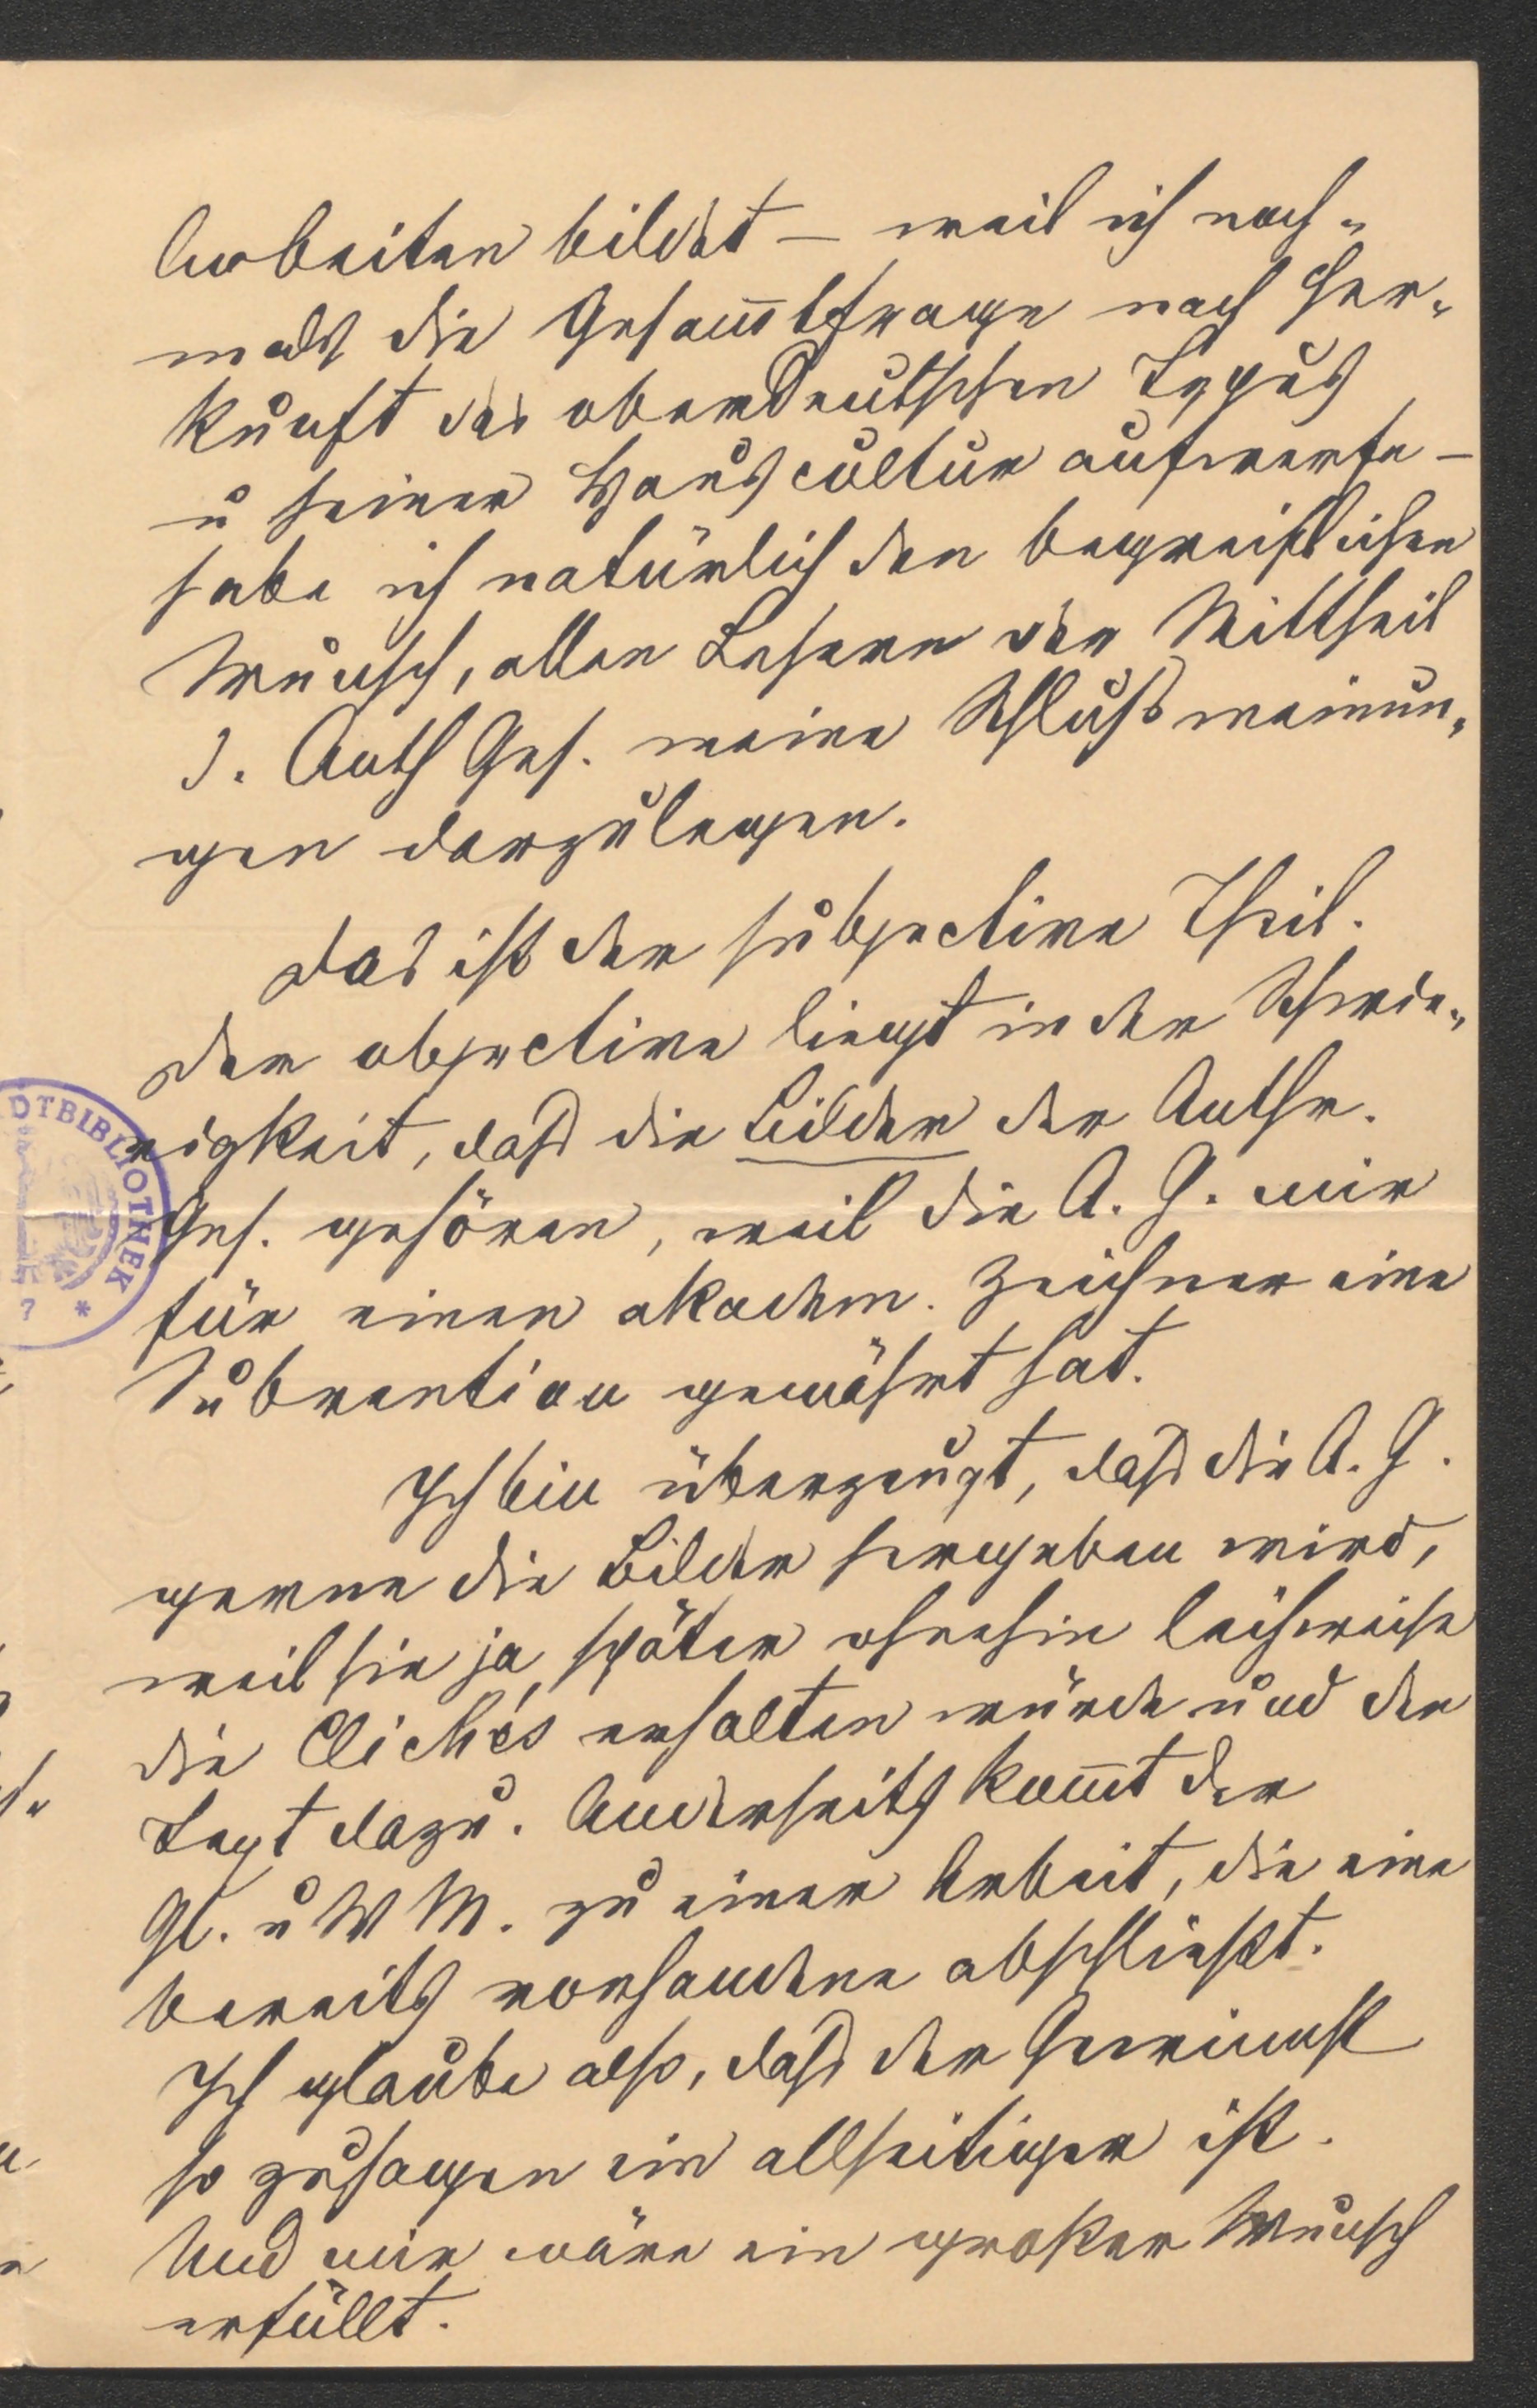 Arbeiten bildet – weil ich noch-
mals die Gesam̅tfrage nach Her-
kunft des oberdeutschen Typus
u seiner Hauscultur aufwerfe –
habe ich natürlich den begreiflichen
Wunsch, allen Lesern der Mittheil
d. Anth Ges. meine Schlußmeinun-
gen darzulegen.
Das ist der subjective Theil.
Der objective liegt in der Schwie-
rigkeit, daß die Bilder der Anthr.
Ges. gehören, weil die A. G. mir
für einen akadem. Zeichner eine
Subvention gewährt hat.
Ich bin überzeugt, daß die A. G.
gerne die Bilder hergeben wird,
weil sie ja später ohnehin leihweise
die Clichés erhalten würde und den
Text dazu. Anderseits kom̅t der
Gl. u W M. zu einer Arbeit, die eine
bereits vorhandene abschließt.
Ich glaube also, daß der Gewinnst
so zusagen ein allseitiger ist.
Und mir wäre ein großer Wunsch
erfüllt.
DTBIBLIOTHEK
7 *